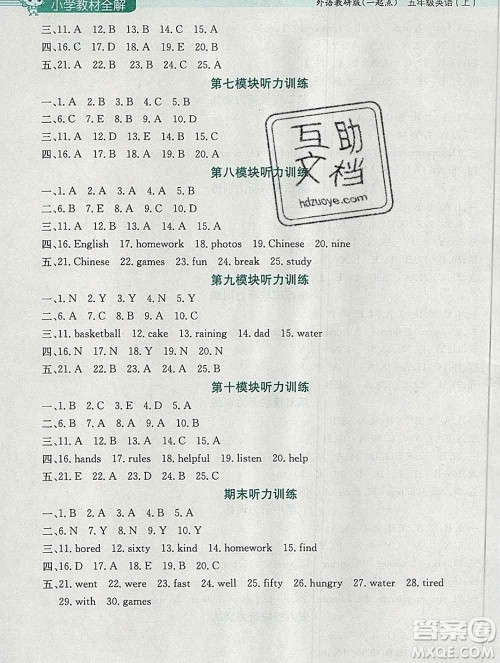 小学教材全解
外语教研版(一起点) 五年级英语(上)
三、11. A 12. B 13. A 14. C 15. B
四、16. C 17. A 18. B 19. D 20. C
五、21. C 22. C 23. B 24. A 25. A
第七模块听力训练
一、1. A 2. D 3. A 4. C 5. B
二、6. C 7. E 8. A 9. B 10. D
三、11. A 12. D 13. E 14. B 15. C
四、16. B 17. A 18. C 19. A 20. C
五、21. C 22. A 23. A 24. A 25. B
第八模块听力训练
一、1. B 2. A 3. C 4. B 5. A
二、6. A 7. B 8. C 9. A 10. C
三、11. B 12. A 13. B 14. A 15. A
四、16. English 17. homework 18. photos 19. Chinese 20. nine
五、21. Chinese 22. games 23. fun 24. break 25. study
第九模块听力训练
一、1. N 2. Y 3. Y 4. N 5. N
二、6. A 7. A 8. B 9. A 10. A
三、11. basketball 12. cake 13. raining 14. dad 15. water
四、16. N 17. N 18. Y 19. N 20. Y
五、21. A 22. B 23. B 24. C 25. C
第十模块听力训练
一、1. B 2. D 3. A 4. E 5. C
二、6. A 7. B 8. A 9. B 10. A
三、11. C 12. B 13. A 14. C 15. A
四、16. hands 17. rules 18. helpful 19. listen 20. help
五、21. E 22. C 23. A 24. B 25. D
期末听力训练
一、1. B 2. A 3. A 4. A 5. A
二、6. N 7. Y 8. N 9. Y 10. Y
三、11. bored 12. sixty 13. kind 14. homework 15. find
四、16. D 17. A 18. E 19. B 20. C
五、21. went 22. were 23. fast 24. well 25. fifty 26. hungry 27. water 28. tired
29. with 30. games
互助
文档
hdzuoye.com
答案圈
MXQE.COM